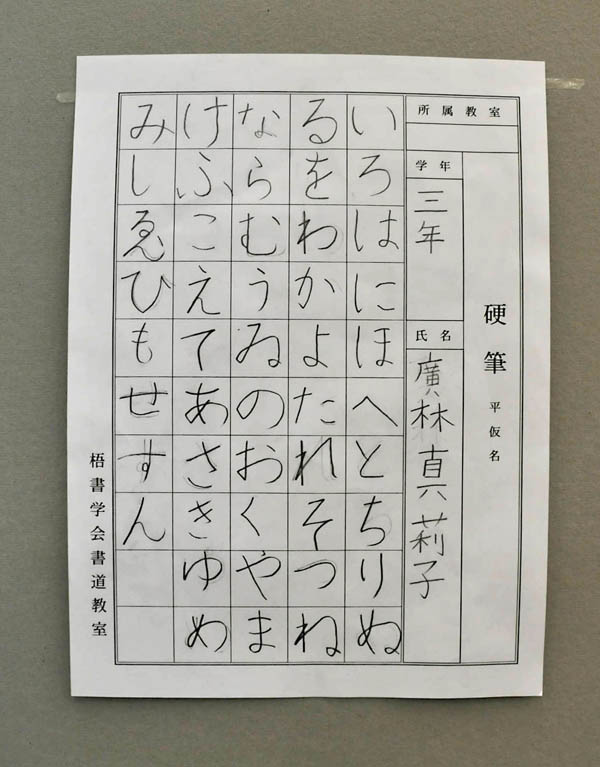 硬筆 平仮名
所属教室
学年
三年
氏名
廣林真莉子
いろはにほへとちりぬ
るをわかよたれそつね
ならむうゐのおくやま
けふこえてあさきゆめ
みしゑひもせすん
梧書学会書道教室